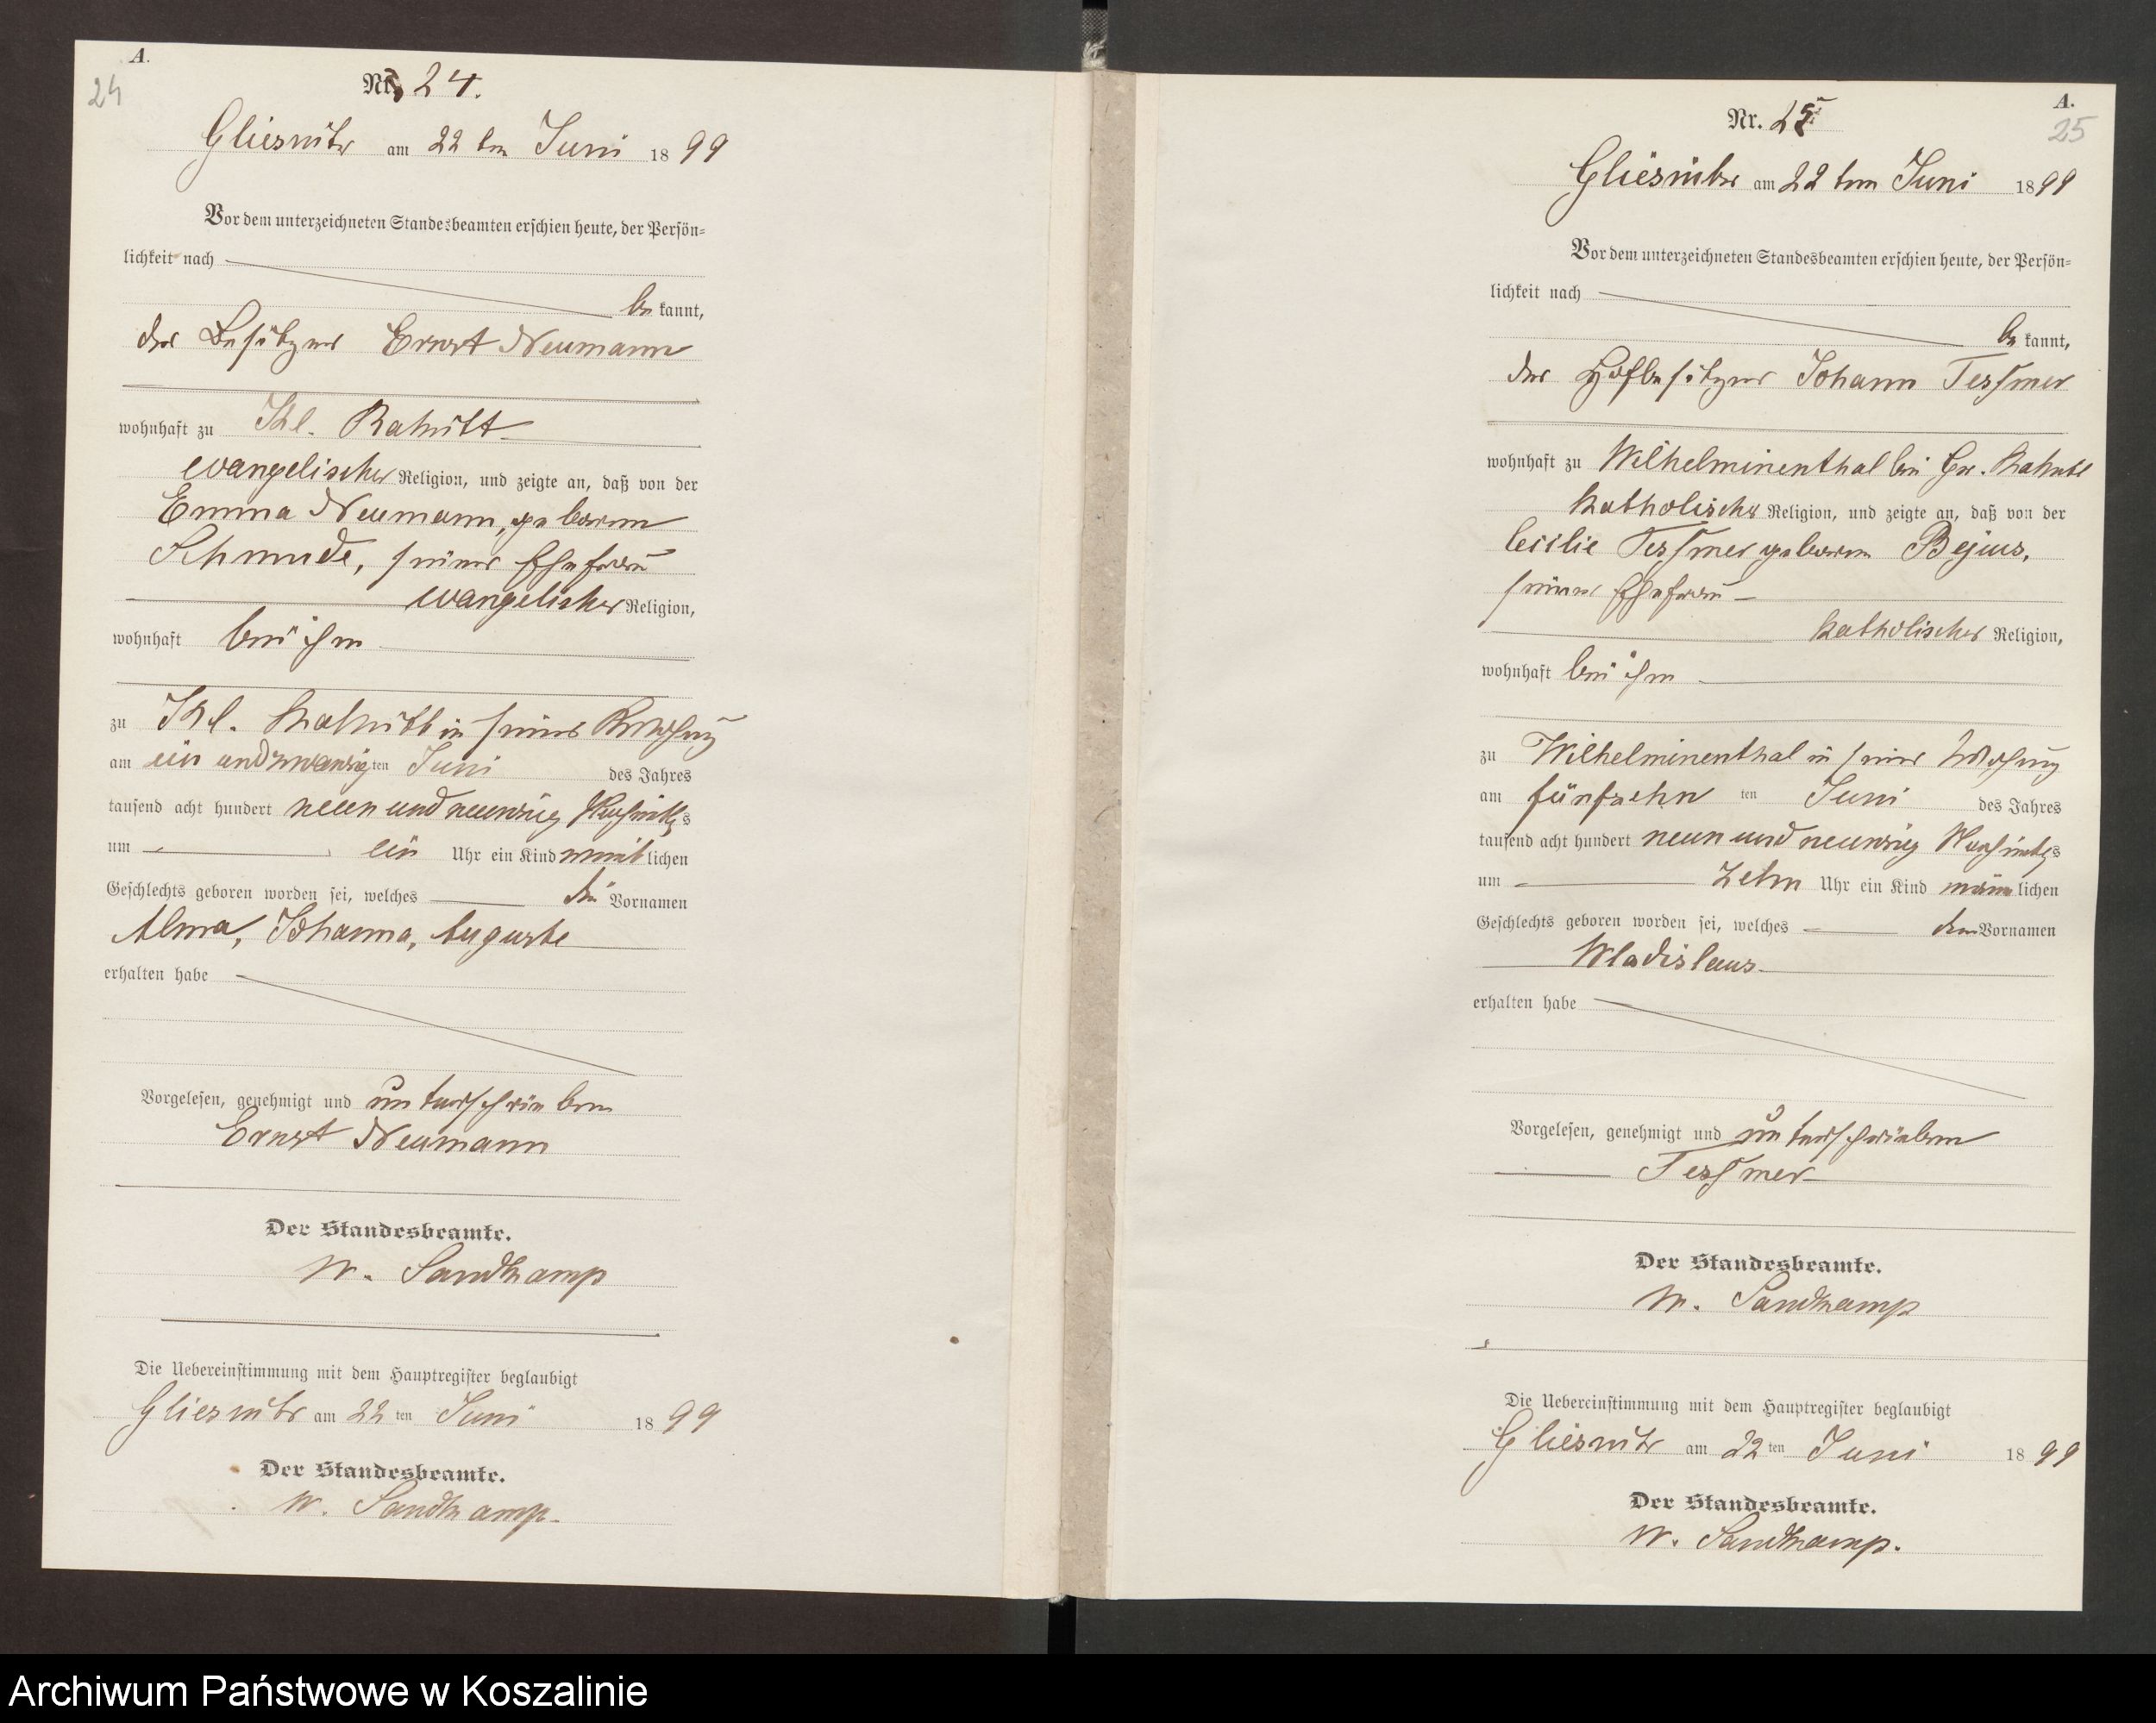 A.
24
Nr. 24.
Gliesnitz am 22 ten Juni 1899
Vor dem unterzeichneten Standesbeamten erschien heute, der Persön=
lichkeit nach
be kannt,
der Besitzer Ernst Neumann
wohnhaft zu Kl. Rakitt
evangelischer Religion, und zeigte an, daß von der
Emma Neumann, geborene
Schmude, seiner Ehefrau
evangelischer Religion,
wohnhaft bei ihm
zu Kl. Rakitt in seiner Wohnung
am ein und zwanzig ten Juni des Jahres
tausend acht hundert neun und neunzig Nachmittags
um ein Uhr ein Kind weiblichen
Geschlechts geboren worden sei, welches die Vornamen
Alma, Johanna, Auguste
erhalten habe
Vorgelesen, genehmigt und unterschrieben
Ernst Neumann
Der Standesbeamte.
W. Sandkamp
Die Uebereinstimmung mit dem Hauptregister beglaubigt
Gliesnitz am 22 ten Juni 1899
Der Standesbeamte.
W. Sandkamp.
A.
25
Nr. 25
Gliesnitz am 22 ten Juni 1899
Vor dem unterzeichneten Standesbeamten erschien heute, der Persön=
lichkeit nach
be kannt,
der Hofbesitzer Johann Tessmer
wohnhaft zu Wilhelminenthal bei Gr. Rakitt
katholischer Religion, und zeigte an, daß von der
Cecilie Tessmer geborene Bejus,
seiner Ehefrau
katholischer Religion,
wohnhaft bei ihm
zu Wilhelminenthal in seiner Wohnung
am fünfzehn ten Juni des Jahres
tausend acht hundert neun und neunzig Nachmittags
um zehn Uhr ein Kind männlichen
Geschlechts geboren worden sei, welches den Vornamen
Wladislaus
erhalten habe
Vorgelesen, genehmigt und unterschrieben
Tessmer
Der Standesbeamte.
W. Sandkamp
Die Uebereinstimmung mit dem Hauptregister beglaubigt
Gliesnitz am 22 ten Juni 1899
Der Standesbeamte.
W. Sandkamp.
Archiwum Państwowe w Koszalinie